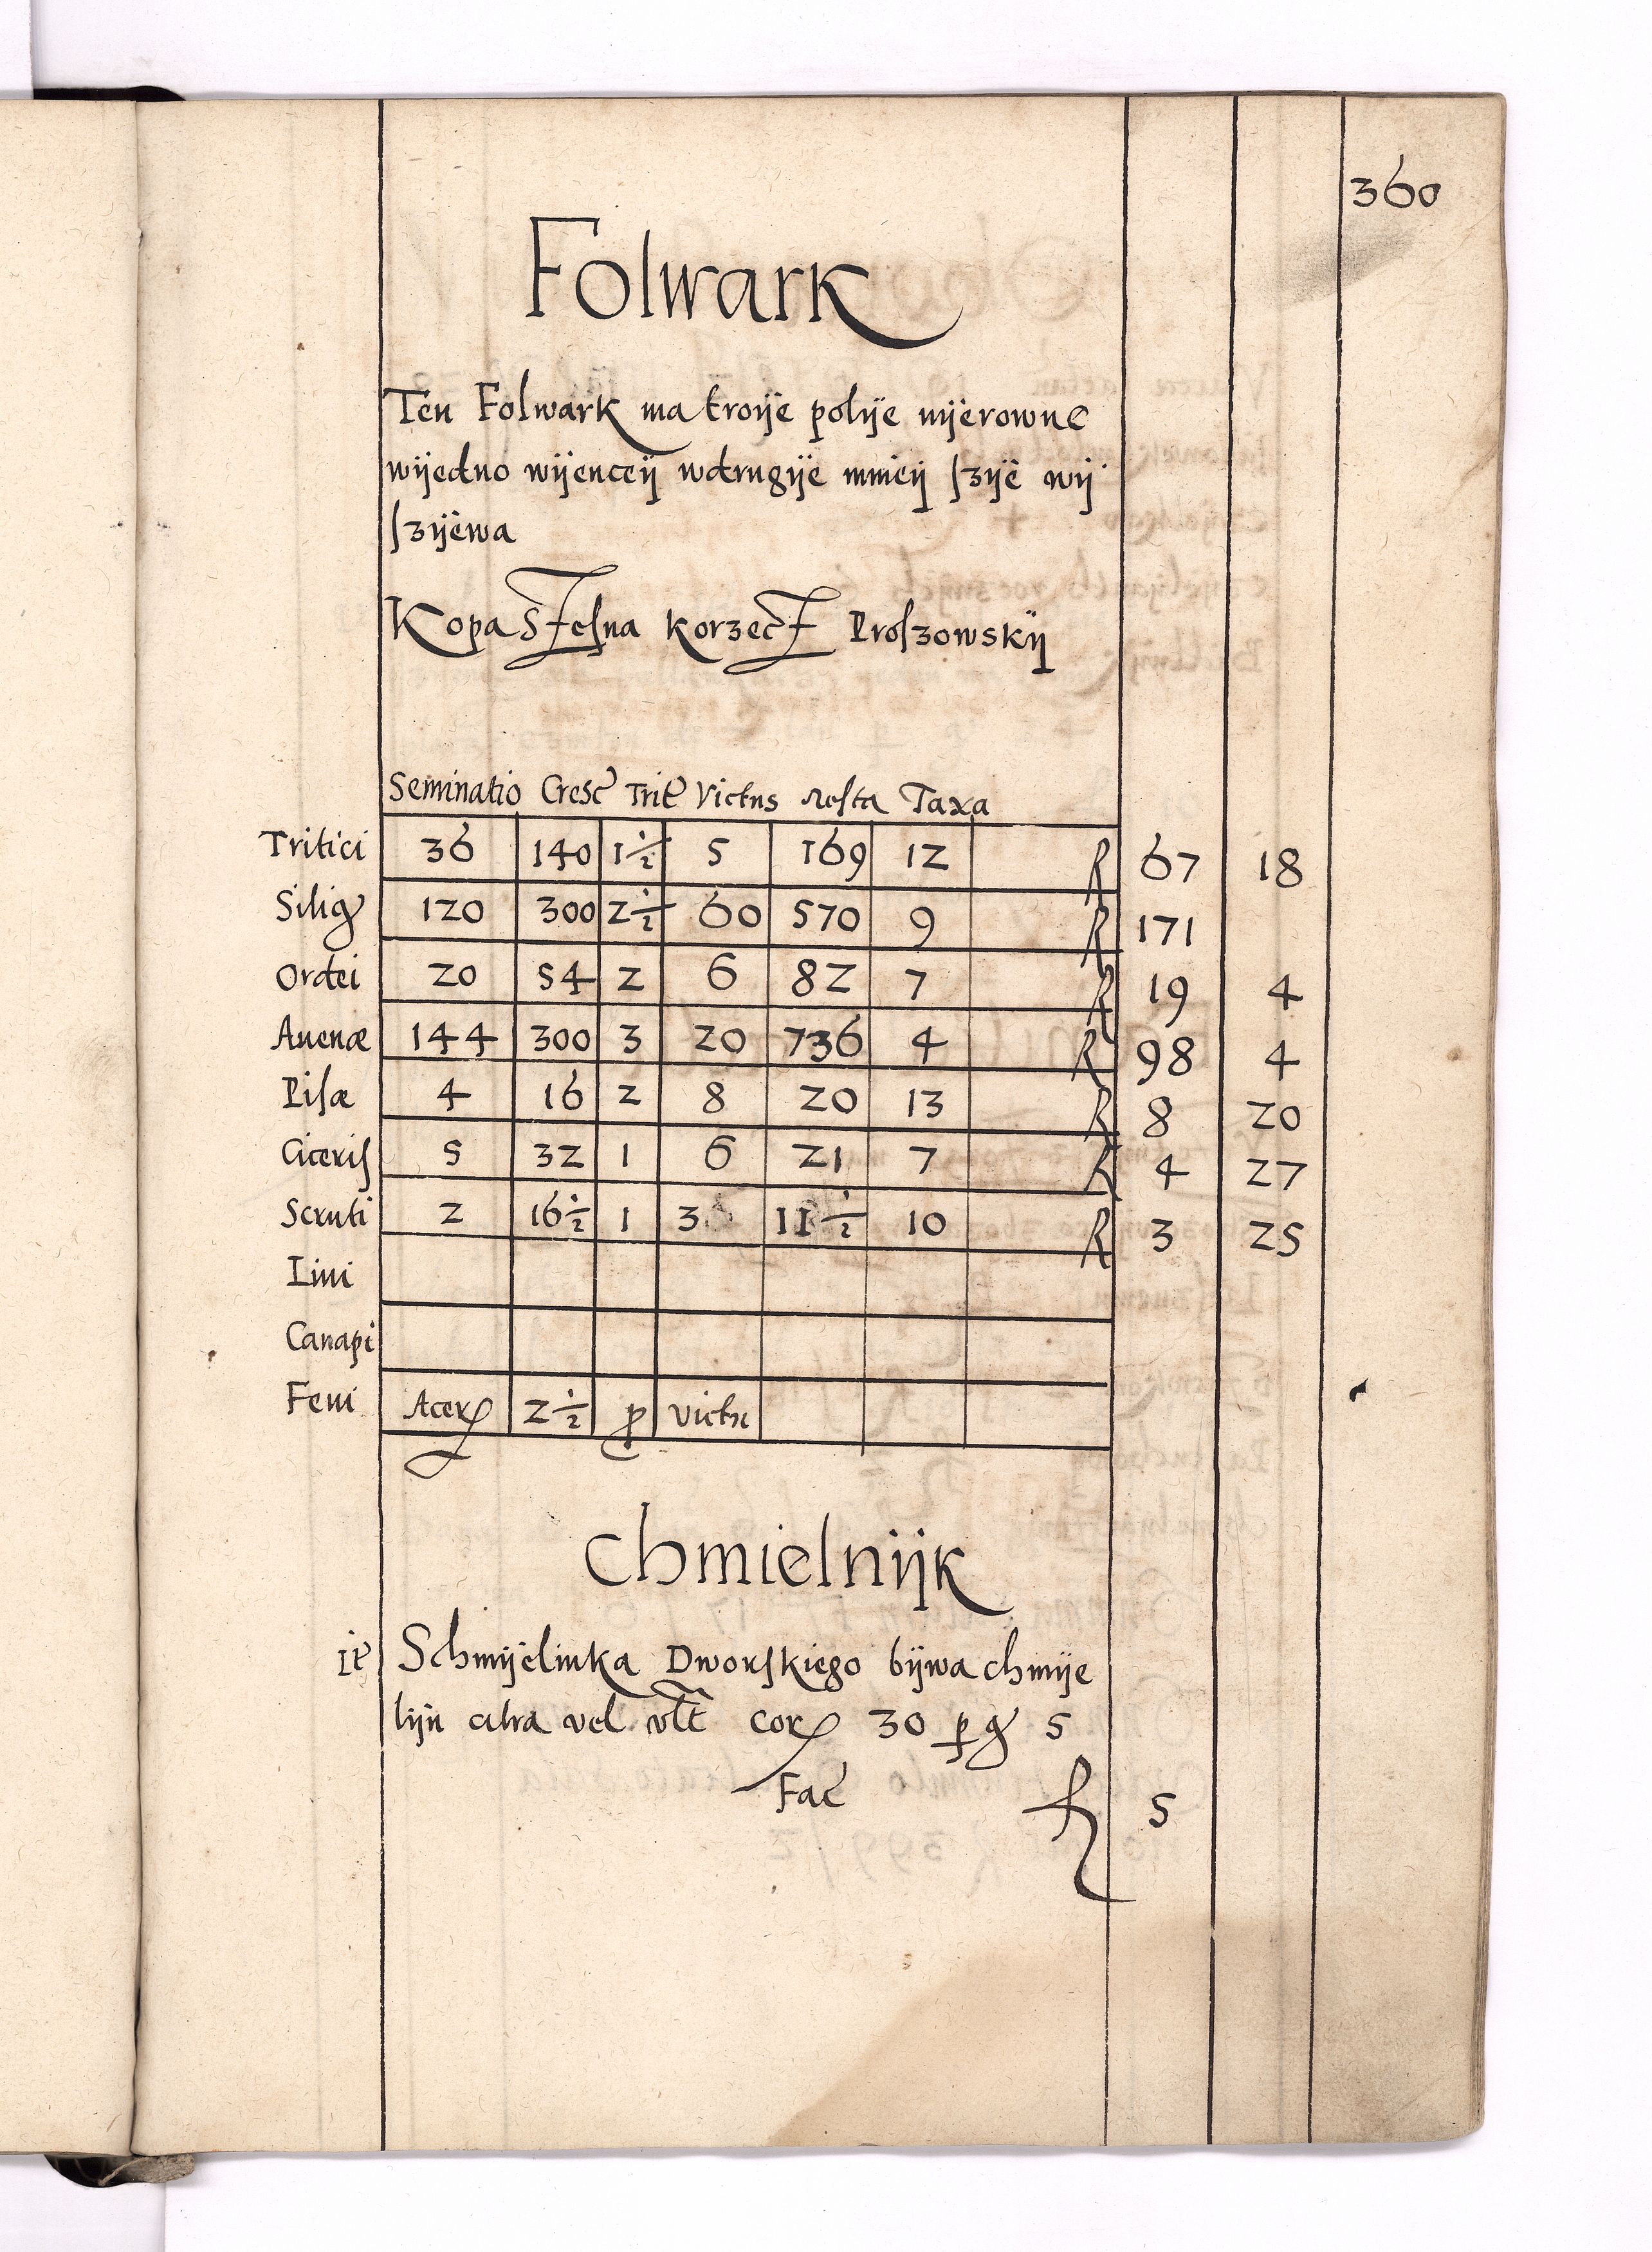 360
Folwark
Ten Folwark ma troiÿe polÿe nÿerowne
wÿedno wÿenceÿ wdrugÿe mnieÿ ſzÿe wÿ
ſzÿewa
Kopa Stesna korzecz Proſzowskÿ
Seminatio Cresc Trit Victus resta Taxa
Tritici 36 140 1½ 5 169 12 R 67 18
Silig 120 300 2½ 60 570 9 R 171
Ordei 20 54 2 6 82 7 R 19 4
Auenæ 144 300 3 20 736 4 R 98 4
Piſæ 4 16 2 8 20 13 R 8 20
Ciceriſ 5 32 1 6 21 7 R 4 27
Scruti 2 16½ 1 3 11½ 10 R 3 25
Lini
Canapi
Feni Acer 2½ p victu
Chmielnÿk
It Schmÿelinka Dworſkiego bÿwa chmÿe
lÿu citra vel vlt cor 30 p g 5
Fac R 5